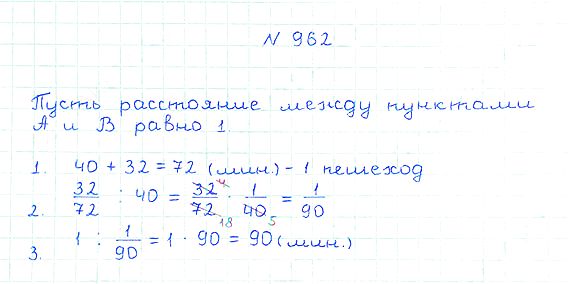 N 962
Пусть расстояние между пунктами
А и В равно 1.
1. 40 + 32 = 72 (мин.) - 1 пешеход
2. 32/72 : 40 = 32/72 · 1/40 = 1/90
4
18 5
3. 1 : 1/90 = 1 · 90 = 90 (мин.)